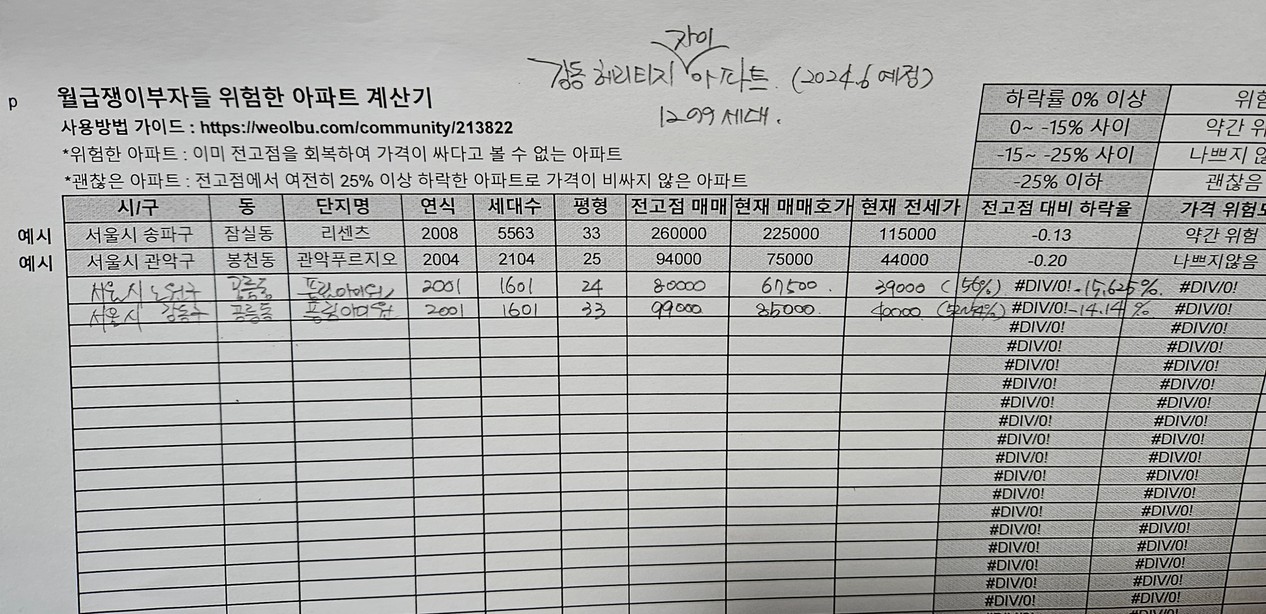 자이
강동 헤리티지 아파트. (2024.6 예정)
1299 세대.
p 월급쟁이부자들 위험한 아파트 계산기
사용방법 가이드 : https://weolbu.com/community/213822
*위험한 아파트 : 이미 전고점을 회복하여 가격이 싸다고 볼 수 없는 아파트
*괜찮은 아파트 : 전고점에서 여전히 25% 이상 하락한 아파트로 가격이 비싸지 않은 아파트
하락률 0% 이상 위험
0~ -15% 사이 약간 위
-15~ -25% 사이 나쁘지 않
-25% 이하 괜찮음
시/구 동 단지명 연식 세대수 평형 전고점 매매 현재 매매호가 현재 전세가 전고점 대비 하락율 가격 위험도
예시 서울시 송파구 잠실동 리센츠 2008 5563 33 260000 225000 115000 -0.13 약간 위험
예시 서울시 관악구 봉천동 관악푸르지오 2004 2104 25 94000 75000 44000 -0.20 나쁘지않음
서울시 노원구 공릉동 풍림아이원 2001 1601 24 80000 67500. 39000 (56%) #DIV/0! -15.625%. #DIV/0!
서울시 공릉동 풍림아이원 2001 1601 33 99000 85000. 40000 #DIV/0! -14.14% #DIV/0!
#DIV/0! #DIV/0!
#DIV/0! #DIV/0!
#DIV/0! #DIV/0!
#DIV/0! #DIV/0!
#DIV/0! #DIV/0!
#DIV/0! #DIV/0!
#DIV/0! #DIV/0!
#DIV/0! #DIV/0!
#DIV/0! #DIV/0!
#DIV/0! #DIV/0!
#DIV/0! #DIV/0!
#DIV/0! #DIV/0!
#DIV/0! #DIV/0!
#DIV/0! #DIV/0!
#DIV/0! #DIV/0!